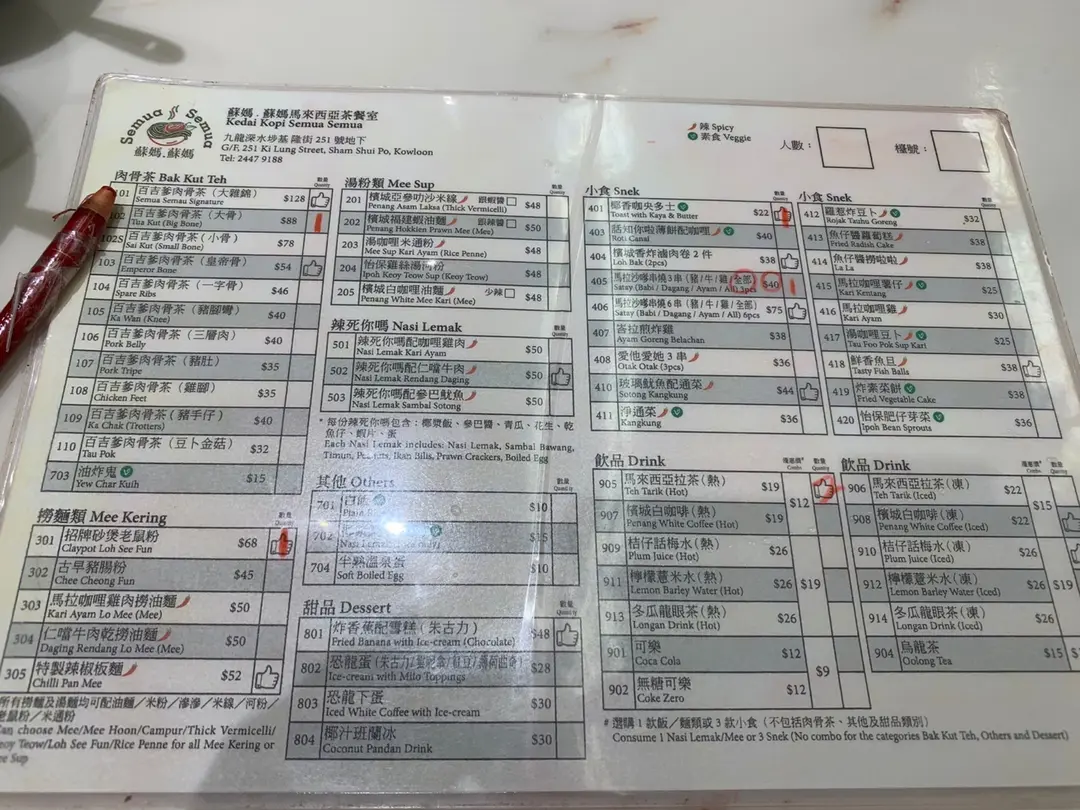 Semua Semua
蘇媽.蘇媽
蘇媽.蘇媽馬來西亞茶餐室
Kedai Kopi Semua Semua
九龍深水埗基隆街 251 號地下
G/F, 251 Ki Lung Street, Sham Shui Po, Kowloon
Tel: 2447 9188
辣 Spicy
素食 Veggie
人數：
檯號：
肉骨茶 Bak Kut Teh
數量
Quantity
101 百吉爹肉骨茶（大雜錦） $128
Semua Semua Signature
102 百吉爹肉骨茶（大骨） $88
Tua Kut (Big Bone)
102S 百吉爹肉骨茶（小骨） $78
Sai Kut (Small Bone)
103 百吉爹肉骨茶（皇帝骨） $54
Emperor Bone
104 百吉爹肉骨茶（一字骨） $46
Spare Ribs
105 百吉爹肉骨茶（豬腳彎） $40
Ka Wan (Knee)
106 百吉爹肉骨茶（三層肉） $40
Pork Belly
107 百吉爹肉骨茶（豬肚） $35
Pork Tripe
108 百吉爹肉骨茶（雞腳） $35
Chicken Feet
109 百吉爹肉骨茶（豬手仔） $40
Ka Chak (Trotters)
110 百吉爹肉骨茶（豆卜金菇） $32
Tau Pok
703 油炸鬼 $15
Yew Char Kuih
撈麵類 Mee Kering
數量
Quantity
301 招牌砂煲老鼠粉 $68
Claypot Loh See Fun
302 古早豬腸粉 $45
Chee Cheong Fun
303 馬拉咖喱雞肉撈油麵 $50
Kari Ayam Lo Mee (Mee)
304 仁噹牛肉乾撈油麵 $50
Daging Rendang Lo Mee (Mee)
305 特製辣椒板麵 $52
Chilli Pan Mee
所有撈麵及湯麵均可配油麵／米粉／滲滲／米線／河粉／
老鼠粉／米通粉
an choose Mee/Mee Hoon/Campur/Thick Vermicelli/
eoy Teow/Loh See Fun/Rice Penne for all Mee Kering or
ee Sup
湯粉類 Mee Sup
數量
Quantity
201 檳城亞參叻沙米線 跟蝦醬 $48
Penang Asam Laksa (Thick Vermicelli)
202 檳城福建蝦油麵 跟辣醬 $50
Penang Hokkien Prawn Mee (Mee)
203 湯咖喱米通粉 $48
Mee Sup Kari Ayam (Rice Penne)
204 怡保雞絲湯河粉 $48
Ipoh Keoy Teow Sup (Keoy Teow)
205 檳城白咖喱油麵 少辣 $48
Penang White Mee Kari (Mee)
辣死你嗎 Nasi Lemak
數量
Quantity
501 辣死你嗎配咖喱雞肉 $50
Nasi Lemak Kari Ayam
502 辣死你嗎配仁噹牛肉 $50
Nasi Lemak Rendang Daging
503 辣死你嗎配參巴魷魚 $50
Nasi Lemak Sambal Sotong
* 每份辣死你嗎包含：椰漿飯、參巴醬、青瓜、花生、乾
魚仔、蝦片、蛋
Each Nasi Lemak includes: Nasi Lemak, Sambal Bawang,
Timun, Peanuts, Ikan Bilis, Prawn Crackers, Boiled Egg
其他 Others
數量
Quantity
701 白飯 $10
Plain
702 $15
Nasi Lemak
704 半熟溫泉蛋 $10
Soft Boiled Egg
甜品 Dessert
數量
Quantity
801 炸香蕉配雪糕（朱古力） $48
Fried Banana with Ice-cream (Chocolate)
802 恐龍蛋 $28
Ice-cream with Milo Toppings
803 恐龍下蛋 $30
Iced White Coffee with Ice-cream
804 椰汁班蘭冰 $30
Coconut Pandan Drink
小食 Snek
數量
Quantity
401 椰香咖央多士 $22
Toast with Kaya & Butter
403 話知你啦薄餅配咖喱 $40
Roti Canai
404 檳城香炸滷肉卷 2 件 $38
Loh Bak (2pcs)
405 馬拉沙嗲串燒 3 串（豬/牛/雞/全部） $40
Satay (Babi / Dagang / Ayam / All) 3pcs
406 馬拉沙嗲串燒 6 串（豬/牛/雞/全部） $75
Satay (Babi / Dagang / Ayam / All) 6pcs
407 峇拉煎炸雞 $38
Ayam Goreng Belachan
408 愛他愛她 3 串 $36
Otak Otak (3pcs)
410 玻璃魷魚配通菜 $44
Sotong Kangkung
411 淨通菜 $36
Kangkung
小食 Snek
數量
Quantity
412 囉惹炸豆卜 $32
Rojak Tauhu Goreng
413 魚仔醬蘿蔔糕 $38
Fried Radish Cake
414 魚仔醬撈啦啦 $38
La La
415 馬拉咖喱薯仔 $25
Kari Kentang
416 馬拉咖喱雞 $30
Kari Ayam
417 湯咖喱豆卜 $25
Tau Foo Pok Sup Kari
418 鮮香魚旦 $38
Tasty Fish Balls
419 炸素菜餅 $38
Fried Vegetable Cake
420 怡保肥仔芽菜 $36
Ipoh Bean Sprouts
飲品 Drink
優惠價#
Combo
數量
Quantity
905 馬來西亞拉茶（熱） $19 $12
Teh Tarik (Hot)
907 檳城白咖啡（熱） $19
Penang White Coffee (Hot)
909 桔仔話梅水（熱） $26 $19
Plum Juice (Hot)
911 檸檬薏米水（熱） $26
Lemon Barley Water (Hot)
913 冬瓜龍眼茶（熱） $26
Longan Drink (Hot)
901 可樂 $12 $9
Coca Cola
902 無糖可樂 $12
Coke Zero
飲品 Drink
優惠價#
Combo
數量
Quantity
906 馬來西亞拉茶（凍） $22 $15
Teh Tarik (Iced)
908 檳城白咖啡（凍） $22
Penang White Coffee (Iced)
910 桔仔話梅水（凍） $26 $19
Plum Juice (Iced)
912 檸檬薏米水（凍） $26
Lemon Barley Water (Iced)
914 冬瓜龍眼茶（凍） $26
Longan Drink (Iced)
904 烏龍茶 $15
Oolong Tea
# 選購 1 款飯／麵類或 3 款小食（不包括肉骨茶、其他及甜品類別）
Consume 1 Nasi Lemak/Mee or 3 Snek (No combo for the categories Bak Kut Teh, Others and Dessert)